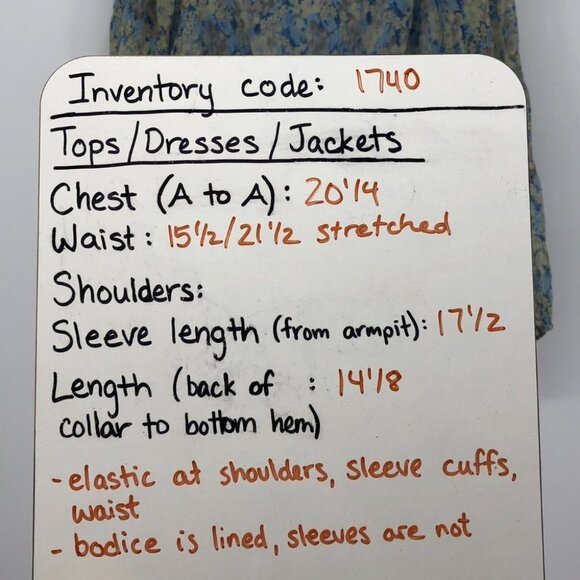 Inventory code: 1740
Tops/Dresses/Jackets
Chest (A to A): 20'1/4
Waist: 15'1/2/21'1/2 stretched
Shoulders:
Sleeve length (from armpit): 17'1/2
Length (back of : 14'1/8
collar to bottom hem)
- elastic at shoulders, sleeve cuffs,
waist
- bodice is lined, sleeves are not